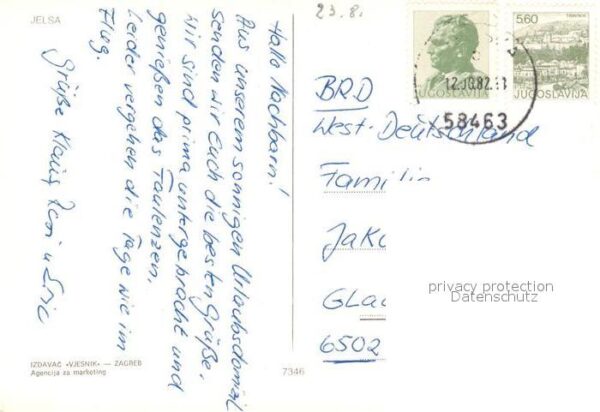 JELSA
23.8.
Hallo Nachbarn!
Aus unserem sonnigen Urlaubsdomizil
senden wir Euch die besten Grüße.
Wir sind prima untergebracht und
genießen das Faulenzen.
Leider vergehen die Tage wie im
Flug.
Grüße Klaus u.
IZDAVAČ »VJESNIK« — ZAGREB
Agencija za marketing
7346
JUGOSLAVIJA
5.60
TREBINJE
JUGOSLAVIJA
58463
BRD
West-Deutschland
Famili
Jak
GLa
6502
privacy protection
Datenschutz